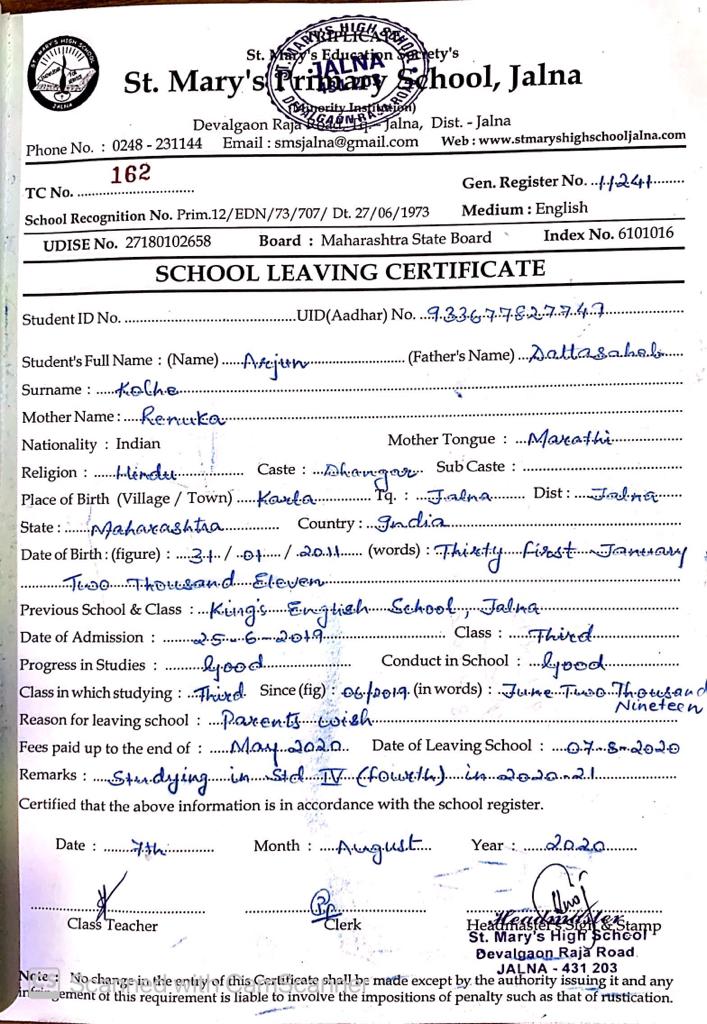 TRIPLICATE
St. Mary's Education Society's
St. Mary's Primary School, Jalna
(Minority Institution)
Devalgaon Raja Road, Tq. - Jalna, Dist. - Jalna
Phone No. : 0248 - 231144 Email : smsjalna@gmail.com Web : www.stmaryshighschooljalna.com
TC No. 162 Gen. Register No. 11241
School Recognition No. Prim.12/EDN/73/707/ Dt. 27/06/1973 Medium : English
UDISE No. 27180102658 Board : Maharashtra State Board Index No. 6101016
SCHOOL LEAVING CERTIFICATE
Student ID No. UID(Aadhar) No. 933677827747
Student's Full Name : (Name) Arjun (Father's Name) Dattasaheb
Surname : Kolhe
Mother Name : Renuka
Nationality : Indian Mother Tongue : Marathi
Religion : Hindu Caste : Dhangar Sub Caste :
Place of Birth (Village / Town) Karla Tq. : Jalna Dist : Jalna
State : Maharashtra Country : India
Date of Birth : (figure) : 31 / 01 / 2011 (words) : Thirty first January
Two Thousand Eleven
Previous School & Class : King's English School, Jalna
Date of Admission : 25-6-2019 Class : Third
Progress in Studies : Good Conduct in School : Good
Class in which studying : Third Since (fig) : 06/2019 (in words) : June Two Thousand
Nineteen
Reason for leaving school : Parents wish
Fees paid up to the end of : May 2020 Date of Leaving School : 07-8-2020
Remarks : Studying in Std IV (fourth) in 2020-21
Certified that the above information is in accordance with the school register.
Date : 7th Month : August Year : 2020
Class Teacher Clerk Headmaster's Sign & Stamp
Headmaster
St. Mary's High School
Devalgaon Raja Road
JALNA - 431 203
Note : No change in the entry of this Certificate shall be made except by the authority issuing it and any
infringement of this requirement is liable to involve the impositions of penalty such as that of rustication.
Scanned with CamScanner